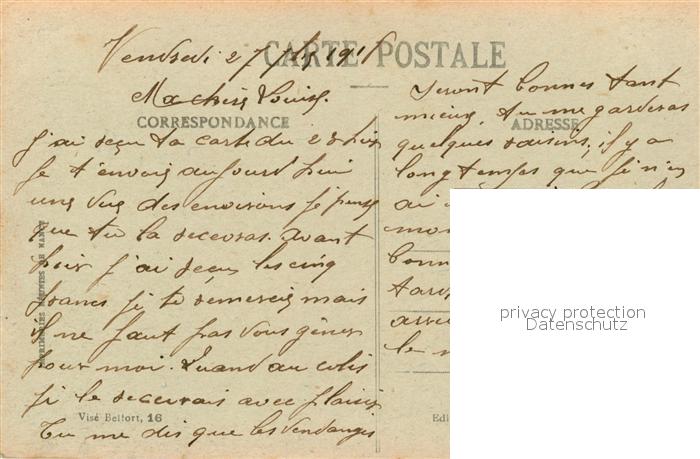 CARTE POSTALE
Vendredi 27 1918
Ma chère Louise.
CORRESPONDANCE
J'ai reçu ta carte du 23 hier
Je t'envoie aujourd'hui
une vue des environs je pense
que tu la recevras. Avant
hier j'ai reçu les cinq
francs je te remercie mais
il ne faut pas vous gêner
pour moi. Quand au colis
je le recevrais avec plaisir
Tu me dis que les vendanges
seront bonnes tant
mieux, tu me garderas
ADRESSE
quelques raisins, il y a
longtemps que je n'en
ai
mon
bonn
tard
arri
le
IMPRIMERIES RÉUNIES DE NANCY
Visé Belfort, 16
Edi
privacy protection
Datenschutz